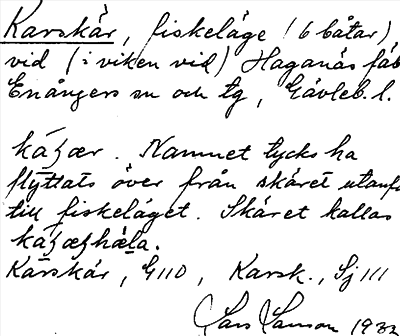 Karskär, fiskeläge (6 båtar)
vid (i viken vid) Haganäs fäb
Enångers sn och tg, Gävleb. l.
káʒær. Namnet tycks ha
flyttats över från skäret utanf
till fiskeläget. Skäret kallas
káʒæʒhæla.
Karskär, G110, Karsk., Sj111
Lars Larsson 1932